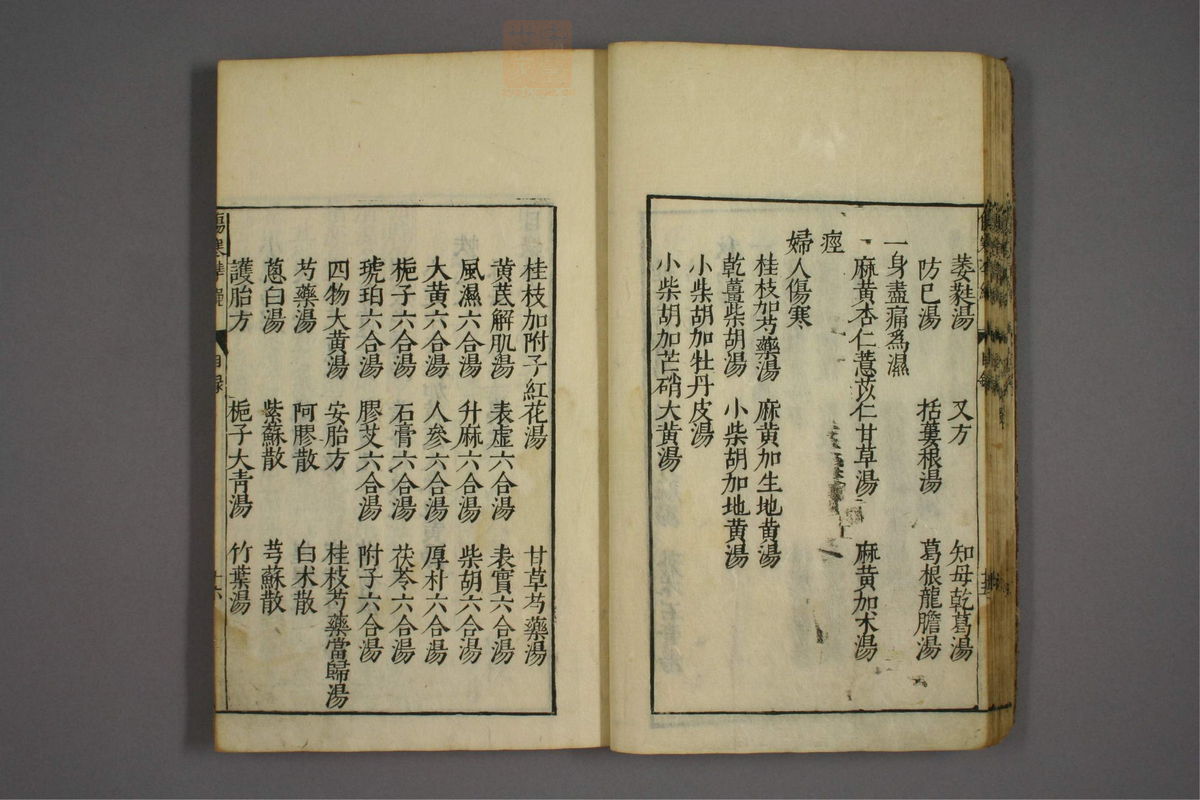 萎蕤湯 又方 知母乾葛湯
防巳湯 括蔞根湯 葛根龍膽湯
一身盡痛爲濕
麻黃杏仁薏苡仁甘草湯 麻黃加术湯
痙
婦人傷寒
桂枝加芍藥湯 麻黃加生地黃湯
乾薑柴胡湯 小柴胡加地黃湯
小柴胡加牡丹皮湯
小柴胡加芒硝大黃湯
桂枝加附子紅花湯 甘草芍藥湯
黃芪解肌湯 表虛六合湯 表實六合湯
風濕六合湯 升麻六合湯 柴胡六合湯
大黃六合湯 人參六合湯 厚朴六合湯
梔子六合湯 石膏六合湯 茯苓六合湯
琥珀六合湯 膠艾六合湯 附子六合湯
四物大黃湯 安胎方 桂枝芍藥當歸湯
芍藥湯 阿膠散 白术散
蔥白湯 紫蘇散 芎蘇散
護胎方 梔子大青湯 竹葉湯
目錄 十六